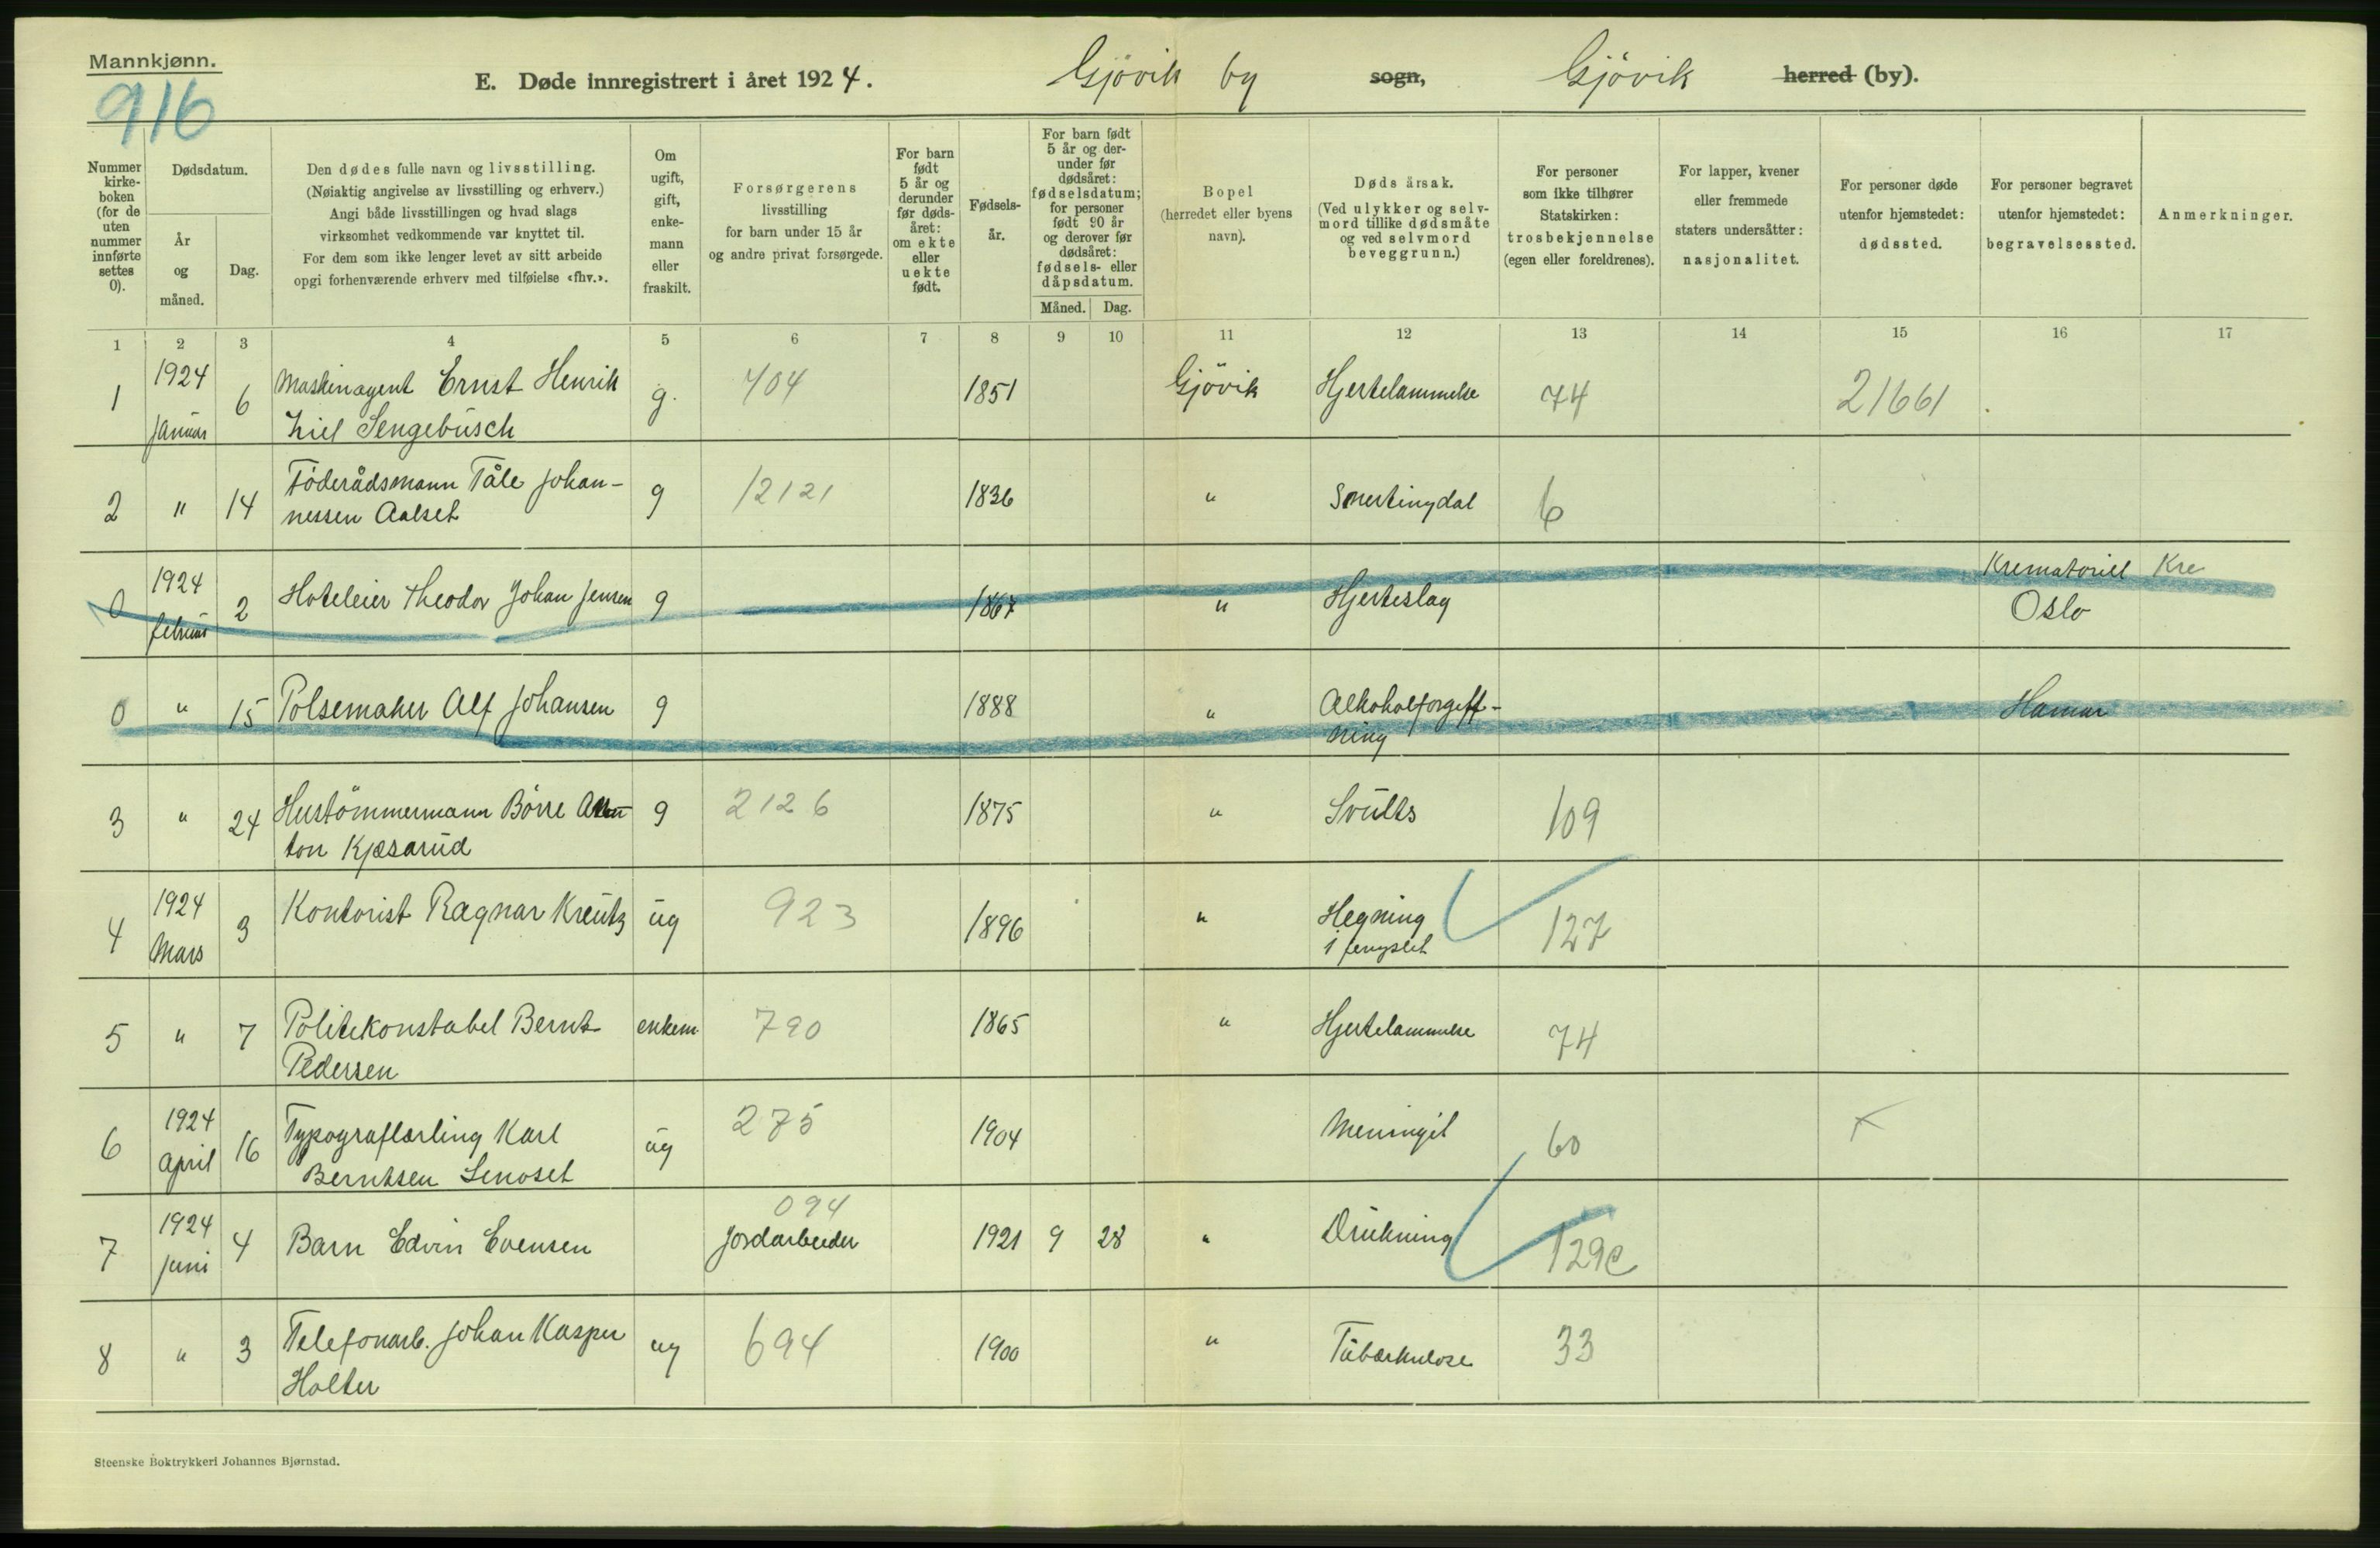 Mannkjønn.
916
E. Døde innregistrert i året 1924. Gjövik by sogn, Gjövik herred (by).
Nummer
kirke-
boken
(for de
uten
nummer
innførte
settes
0).
Dødsdatum.
År
og
måned.
Dag.
Den dødes fulle navn og livsstilling.
(Nøiaktig angivelse av livsstilling og erhverv.)
Angi både livsstillingen og hvad slags
virksomhet vedkommende var knyttet til.
For dem som ikke lenger levet av sitt arbeide
opgi forhenværende erhverv med tilføielse «fhv.».
Om
ugift,
gift,
enke-
mann
eller
fraskilt.
Forsørgerens
livsstilling
for barn under 15 år
og andre privat forsørgede.
For barn
født
5 år og
derunder
før døds-
året:
om ekte
eller
uekte
født.
Fødsels-
år.
For barn født
5 år og der-
under før
dødsåret:
fødselsdatum;
for personer
født 90 år
og derover før
dødsåret:
fødsels- eller
dåpsdatum.
Måned. Dag.
Bopel
(herredet eller byens
navn).
Døds årsak.
(Ved ulykker og selv-
mord tillike dødsmåte
og ved selvmord
beveggrunn.)
For personer
som ikke tilhører
Statskirken:
trosbekjennelse
(egen eller foreldrenes).
For lapper, kvener
eller fremmede
staters undersåtter:
nasjonalitet.
For personer døde
utenfor hjemstedet:
dødssted.
For personer begravet
utenfor hjemstedet:
begravelsessted.
Anmerkninger.
1 2 3 4 5 6 7 8 9 10 11 12 13 14 15 16 17
1 1924 Januar 6 Maskinagent Ernst Henrik g. 704 1851 Gjövik Hjertelammelse 74 21661
Ziel Sengebusch
2 " 14 Föderådsmann Tåle Johan- g 12121 1836 " Snertingdal 6
nessen Aalset
0 1924 februar 2 Hoteleier Theodor Johan Jensen g 1867 " Hjerteslag Krematoriet Kre
Oslo
0 " 15 Pölsemaker Alf Johansen g 1888 " Alkoholforgift- Hamar
ning
3 " 24 Hustömmermann Börre An g 2126 1875 " Svulst 109
ton Kjøsarud
4 1924 Mars 3 Kontorist Ragnar Kreutz ug 923 1896 " Hegning 127
i fengslet
5 " 7 Politikonstabel Bernt enkem 790 1865 " Hjertelammelse 74
Pedersen
6 1924 April 16 Typograflærling Karl ug 275 1904 Meningit 60
Berntsen Senoset
7 1924 Juni 4 Barn Edvin Evensen 094 Jordarbeider 1921 9 28 " Drukning 129c
8 " 3 Telefonarb. Johan Kasper ug 694 1900 " Tuberkulose 33
Holter
Steenske Boktrykkeri Johannes Bjørnstad.